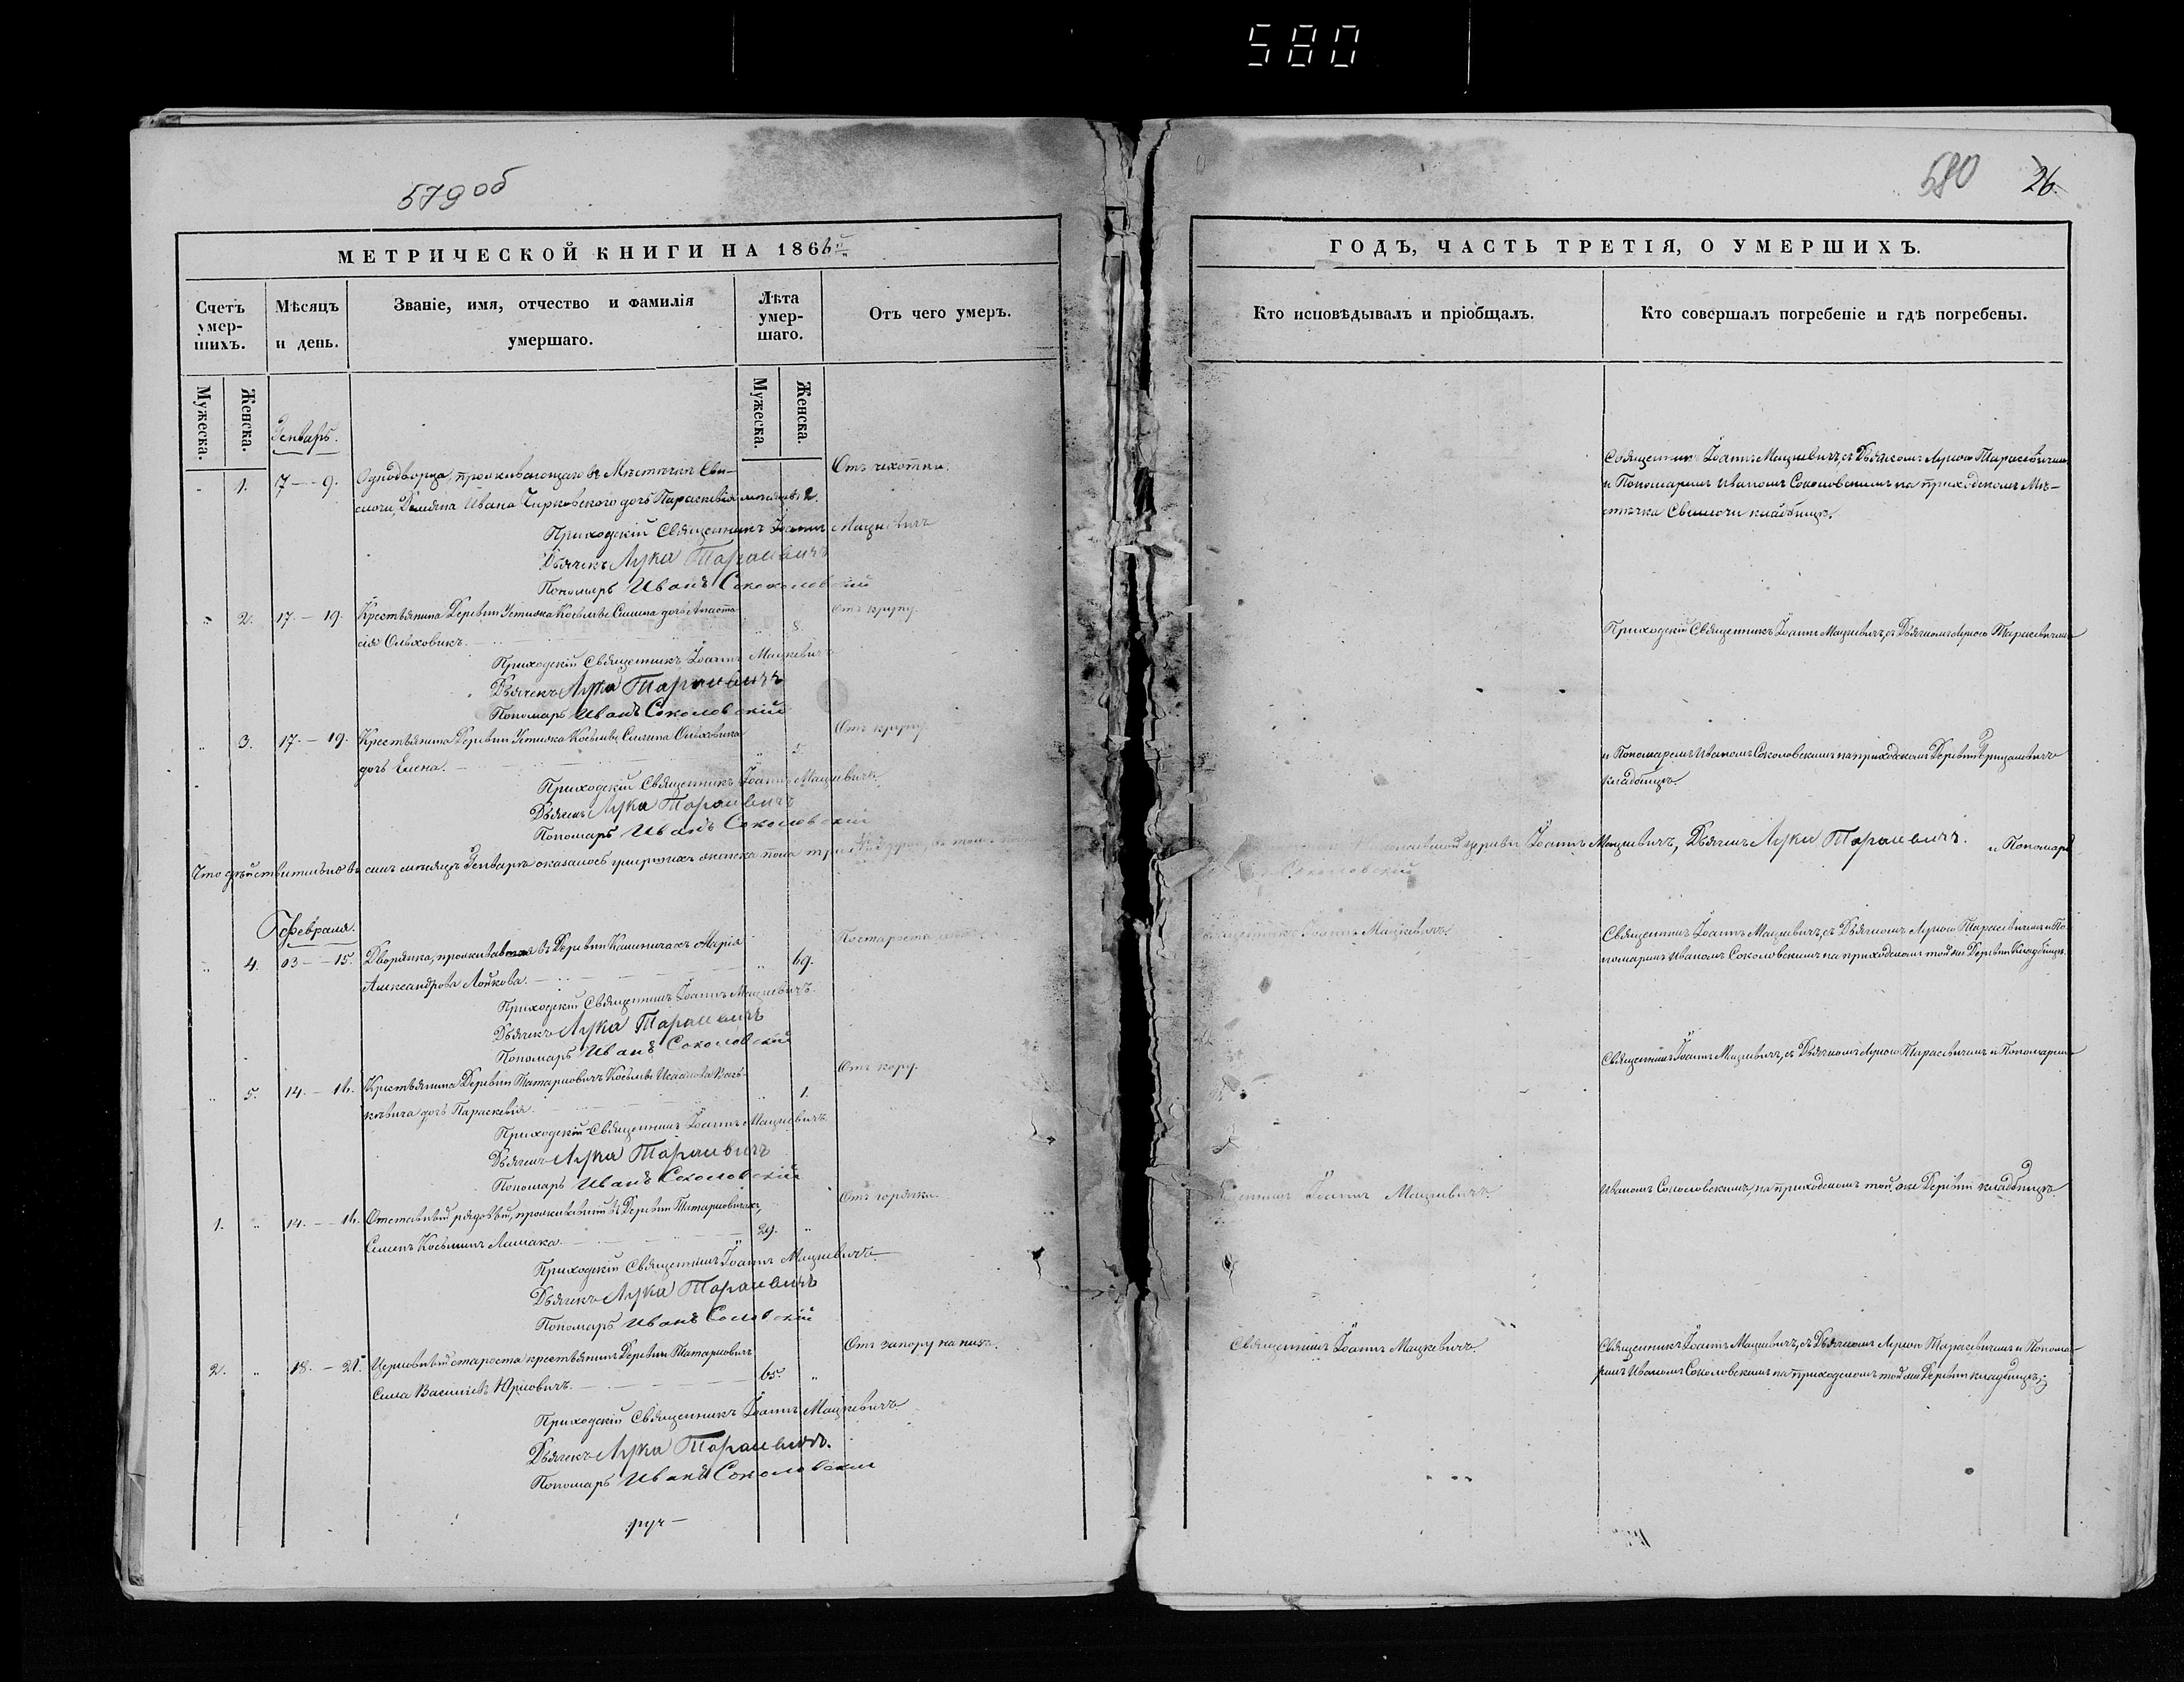 580
579 об
580 26.
МЕТРИЧЕСКОЙ КНИГИ НА 1866й
ГОДЪ, ЧАСТЬ ТРЕТІЯ, О УМЕРШИХЪ.
Счетъ умер-шихъ.
Мѣсяцъ и день.
Званіе, имя, отчество и фамилія умершаго.
Лѣта умер-шаго.
Отъ чего умеръ.
Кто исповѣдывалъ и пріобщалъ.
Кто совершалъ погребеніе и гдѣ погребены.
Мужеска.
Женска.
Мужеска.
Женска.
Генварь.
1. 7 — 9. Однодворца, проживающаго въ Мѣстечкѣ Сви- Отъ чахотки.
слочи, Демяна Ивана Чирковского дочь Параскевія мѣсяцевъ 2.
Священникъ Іоаннъ Мацкевичъ, съ Дьячкомъ Лукою Тарасевичемъ
и Пономаремъ Иваномъ Соколовскимъ на приходскомъ Мѣ-
стечка Свислочи кладбищѣ.
Приходскій Священникъ Іоаннъ Мацкевичъ
Дьячекъ Лука Тарасевичъ
Пономарь Иванъ Соколовскій
2. 17. — 19. Крестьянина Деревни Устижа Косьмы Силина дочь Анаста- 8. Отъ крупу.
сія Ольховикъ.
Приходскій Священникъ Іоаннъ Мацкевичъ, съ Дьячкомъ Лукою Тарасевичемъ
Приходскій Священникъ Іоаннъ Мацкевичъ
Дьячекъ Лука Тарасевичъ
Пономарь Иванъ Соколовскій
3. 17. — 19. Крестьянина Деревни Устижа Косьмы Силина Ольховика 5. Отъ крупу
дочь Елена.
и Пономаремъ Иваномъ Соколовскимъ на приходскомъ Деревни
кладбищѣ.
Приходскій Священникъ Іоаннъ Мацкевичъ
Дьячекъ Лука Тарасевичъ
Пономарь Иванъ Соколовскій
Что дѣйствительно въ семъ мѣсяцѣ Генварѣ оказалось умершихъ женска пола три въ томъ
церкви Іоаннъ Мацкевичъ, Дьячекъ Лука Тарасевичъ. и Пономарь
Соколовскій
Февраля.
4. 13 — 15. Дворянка, проживавшая въ Деревни Калиничахъ Марія 69.
Александрова Лойкова.
Священникъ Іоаннъ Мацкевичъ.
Священникъ Іоаннъ Мацкевичъ, съ Дьячкомъ Лукою Тарасевичемъ и По-
номаремъ Иваномъ Соколовскимъ на приходскомъ той же Деревни Кладбищѣ.
Приходскій Священникъ Іоаннъ Мацкевичъ.
Дьячекъ Лука Тарасевичъ
Пономарь Иванъ Соколовскій
5. 14. — 16. Крестьянина Деревни Татарковичъ Косьмы Исаакова Вась- 1. Отъ кору.
кевича дочь Параскевія.
Священникъ Іоаннъ Мацкевичъ, съ Дьячкомъ Лукою Тарасевичемъ и Пономаремъ
Приходскій Священникъ Іоаннъ Мацкевичъ
Дьячекъ Лука Тарасевичъ
Пономарь Иванъ Соколовскій
1. 14. — 16. Отставный рядовый, проживавшій въ Деревни Татарковичахъ, 29. Отъ горячки.
Семенъ Косьминъ Лашака.
Іоаннъ Мацкевичъ.
Иваномъ Соколовскимъ, на приходскомъ той же Деревни кладбищѣ.
Приходскій Священникъ Іоаннъ Мацкевичъ
Дьячекъ Лука Тарасевичъ
Пономарь Иванъ
2. 18. — 21. Церковный староста крестьянинъ Деревни Татарковичъ 65. Отъ запору
Сила Васильевъ Юрковичъ.
Священникъ Іоаннъ Мацкевичъ.
Священникъ Іоаннъ Мацкевичъ, съ Дьячкомъ Лукою Тарасевичемъ и Понома-
ремъ Иваномъ Соколовскимъ на приходскомъ той же Деревни кладбищѣ.
Приходскій Священникъ Іоаннъ Мацкевичъ
Дьячекъ Лука Тарасевичъ.
Пономарь Иванъ Соколовскій